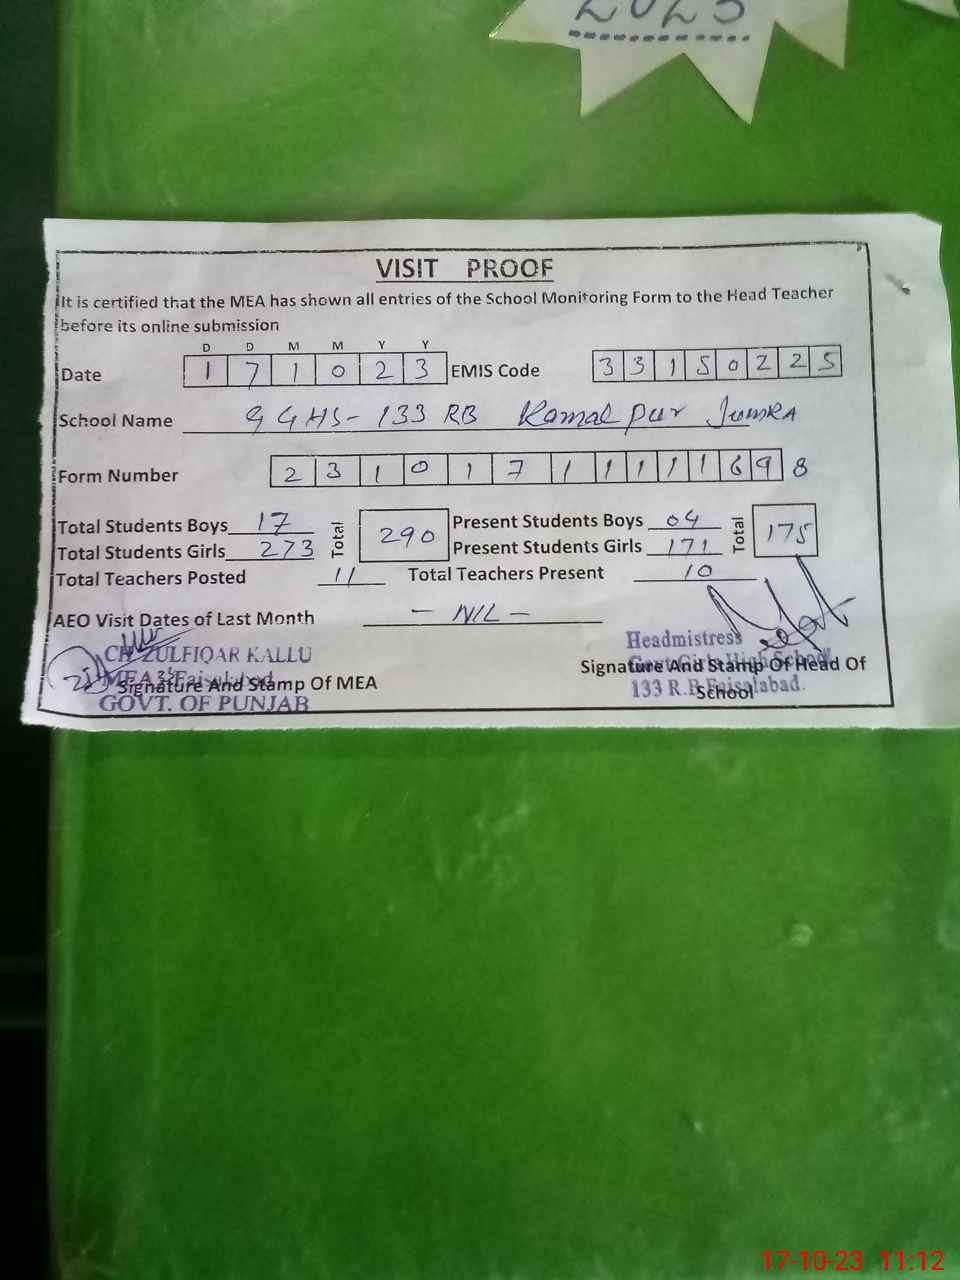 2023
VISIT PROOF
It is certified that the MEA has shown all entries of the School Monitoring Form to the Head Teacher
before its online submission
D D M M Y Y
Date 1 7 1 0 2 3 EMIS Code 3 3 1 5 0 2 2 5
School Name GGHS-133 RB Kamal Pur JumRA
Form Number 2 3 1 0 1 7 1 1 1 1 1 6 9 8
Total Students Boys 17 Total 290 Present Students Boys 04 Total 175
Total Students Girls 273 Present Students Girls 171
Total Teachers Posted 11 Total Teachers Present 10
AEO Visit Dates of Last Month - NIL -
CH ZULFIQAR KALLU Headmistress
MEA Faisalabad Govt Girls High School
Signature And Stamp Of MEA Signature And Stamp Of Head Of
GOVT. OF PUNJAB 133 R.B Faisalabad.
School
17-10-23 11:12